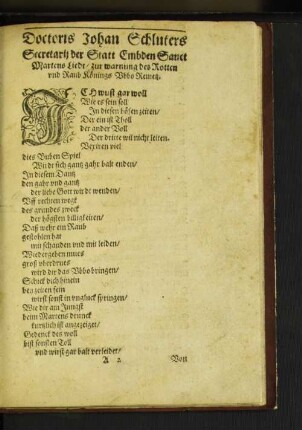 Doctoris Johan Schluters
Secretarij der Statt Embden Sanct
Martens Liedt / zur warnung des Rotten
vnd Raub Königs Vbbo Remetz.
ICH wust gar woll
Wie es sein soll
In diesen bösen zeiten /
Der ein ist Tholl
der ander Voll
Der dritte wil nicht leiten.
Betriren viel
dies Buben Spiel
Wirdt sich gantz gahr balt enden /
In diesem Dantz
den gahr vnd gantz
der liebe Gott wirdt wenden /
Vff rechten wegt
des grundes zweck
der högsten billigkeiten /
Daß mehr ein Raub
gestohlen hat
mit schanden vnd mit leiden /
Wiedergeben mues
gros vberdrues
wird dir das Vbbo bringen /
Schick dich hinein
bei zeiten fein
wirst sonst in vngluck springen /
Wie dir am Jungst
beim Martens drunck
kurtzlich ist angezeiget /
Gedenck des woll
bist sonsten Toll
vnd wirst gar balt verleidet /
A 2 Von